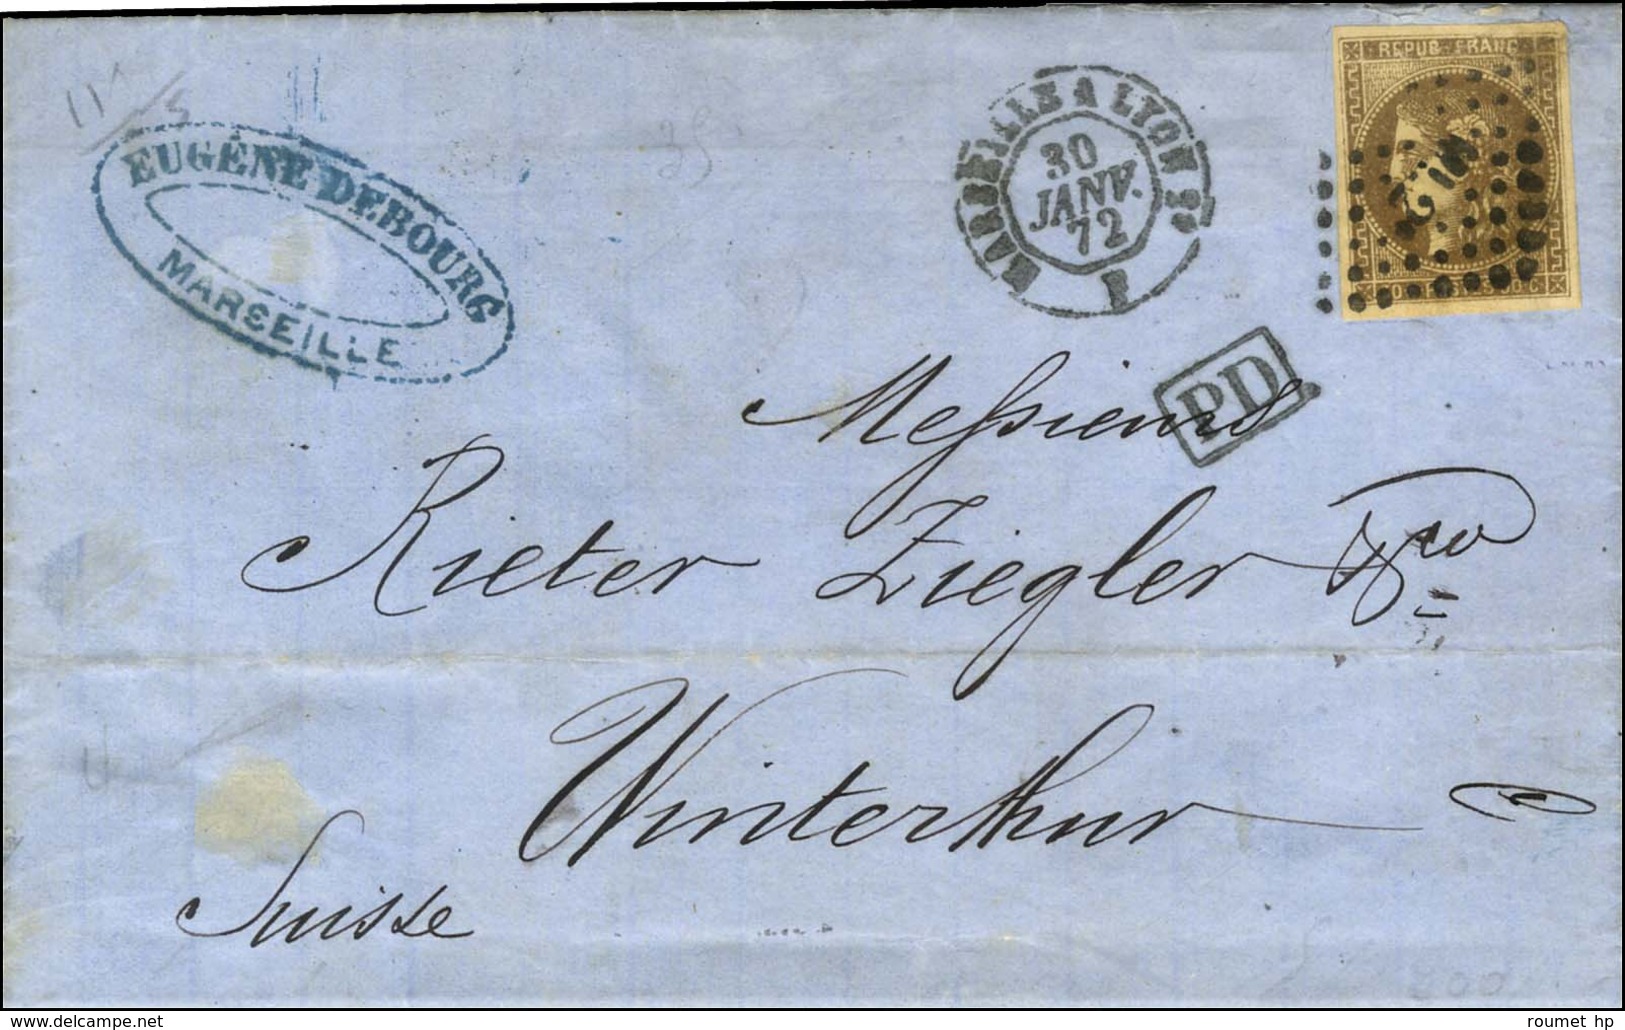 11
5
EUGÈNE DEBOURG
MARSEILLE
MARSEILLE A LYON
30
JANV.
72
REPUB. FRANC
PD
Messieurs
Rieter Ziegler & Co
Winterthur
Suisse
200
www.delcampe.net
roumet hp